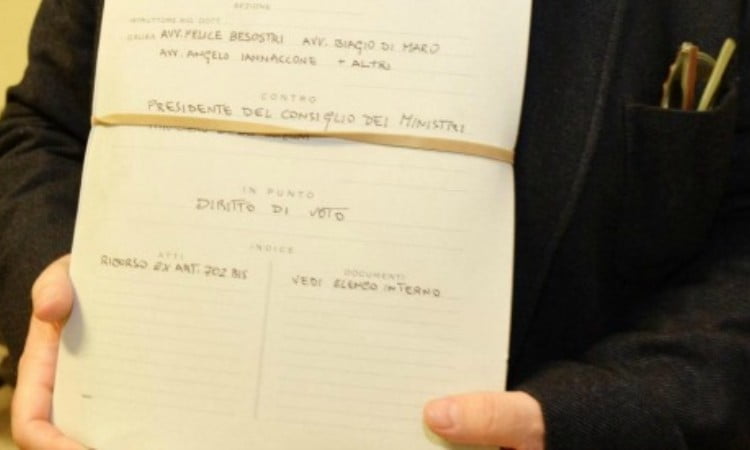 SEZIONE
ISTRUTTORE SIG. DOTT.
CAUSA AVV. FELICE BESOSTRI AVV. BIAGIO DI MARO
AVV. ANGELO IANNACCONE + ALTRI
CONTRO
PRESIDENTE DEL CONSIGLIO DEI MINISTRI
IN PUNTO
DIRITTO DI VOTO
INDICE
ATTI
RICORSO EX ART. 702 BIS
DOCUMENTI
VEDI ELENCO INTERNO